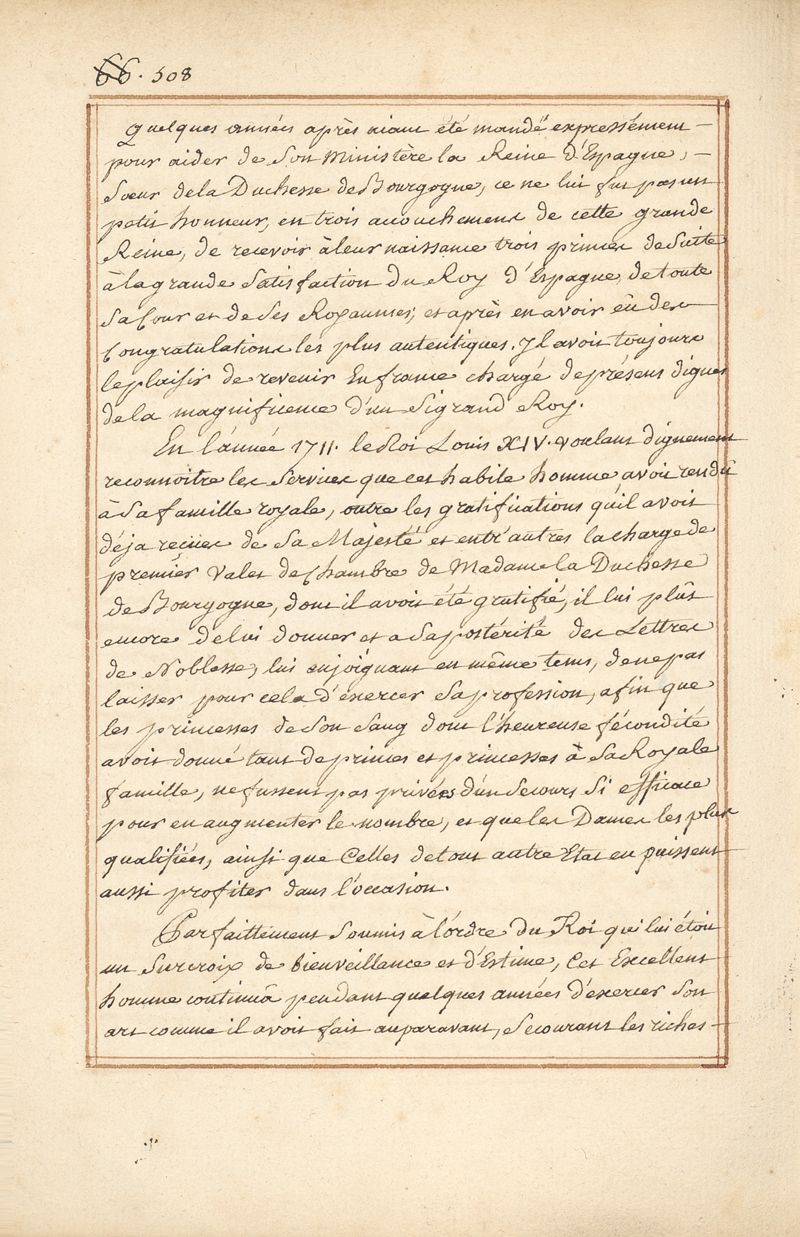 66. 508
Quelques années après aiant été mandé expressément
pour aider de Son Ministère la Reine d'Espagne,
Sœur de la Duchesse de Bourgogne, ce ne lui fut pas un
petit honneur, en trois accouchemens de cette grande
Reine, de recevoir à leur naissance trois princes de Suite
à la grande Satisfaction du Roy d'Espagne, de toute
Sa Cour et de Ses Royaumes; et après en avoir eu des
Congratulations les plus autentiques. Il avoit toujours
le plaisir de revenir En france chargé de présens dignes
de la magnificence d'un Si grand Roy.
En l'année 1711. le Roi Louis XIV. voulant dignement
reconnoitre les Services que cet habile homme avoit rendu
à Sa famille royale, outre les gratifications qu'il avoit
déja reçües de Sa Majesté et entr'autres la charge de
premier Valet de Chambre de Madame la Duchesse
de Bourgogne, dont il avoit été gratifié, il lui plût
encore de lui donner et a Sa postérité des Lettres
de Noblesse; lui enjoignant en même tems, de ne pas
laisser pour cela d'éxercer Sa profession, afin que
les princesses de Son Sang dont l'heureuse fécondité
avoit donné tant de princes et princesses à Sa Royale
famille, ne fussent pas privées d'un Secours Si efficace
pour en augmenter le nombre, et que les Dames les plus
qualifiées, ainsi que Celles de tout autre Etat en puissent
aussi profiter dans l'occasion.
Parfaittement Soumis à l'ordre du Roi qui lui étoit
un Surcroix de bienveillance et d'Estime, Cet Excellent
homme continuâ pendant quelques années d'exercer Son
art comme il avoit fait auparavant, Secourant les riches